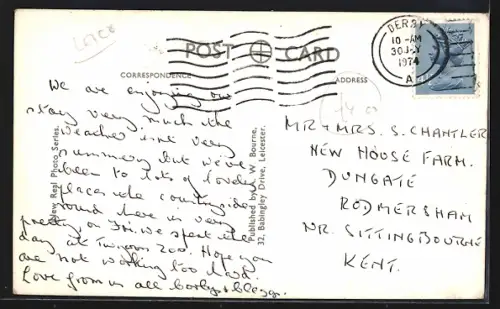 POST CARD
CORRESPONDENCE
ADDRESS
DERBY
10-AM
30 JLY
1974
A
We are enjoying our
stay very much the
weather isnt very
summery but we've
been to lots of lovely
places the countryside
round here is very
pretty, on Fri. we spent the
day at Twycross Zoo. Hope you
are not working too hard.
Love from us all
MR & MRS. S. CHANTLER
NEW HOUSE FARM.
DUNGATE
RODMERSHAM
NR. SITTINGBOURNE
KENT.
view Real Photo Series.
Published by A. W. Bourne,
32, Babingley Drive, Leicester.